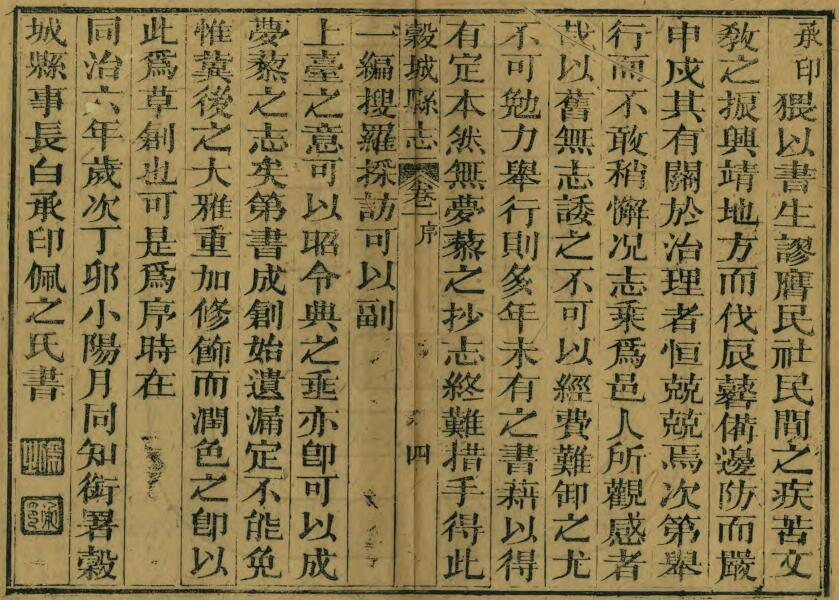 承印猥以書生謬膺民社民間之疾苦文
敎之振興靖地方而伐辰藝備邊防而嚴
申戍其有關於治理者恒兢兢焉次第舉
行而不敢稍懈況志乘爲邑人所觀感者
哉以舊無志諉之不可以經費難卸之尤
不可勉力舉行則多年未有之書藉以得
有定本然無夢藜之抄志終難措手得此
穀城縣志 卷一 序 四
一編搜羅採訪可以副
上臺之意可以昭令典之垂亦卽可以成
夢藜之志矣第書成創始遺漏定不能免
惟冀後之大雅重加修飾而潤色之卽以
此爲草創也可是爲序時在
同治六年歲次丁卯小陽月同知銜署穀
城縣事長白承印佩之氏書